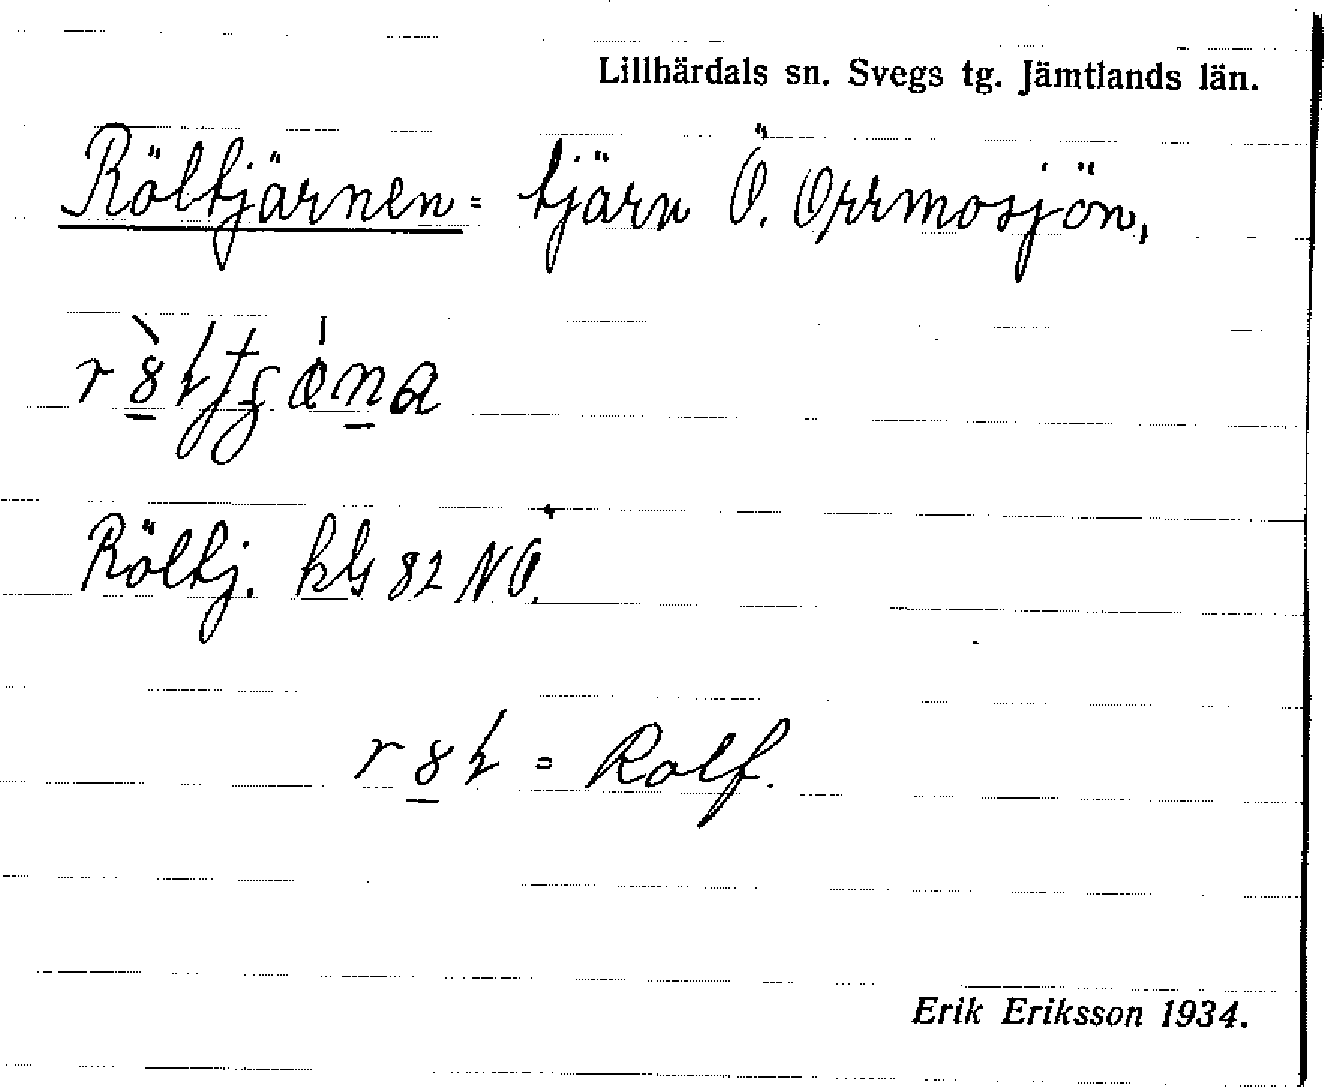 Lillhärdals sn. Svegs tg. Jämtlands län.
Röltjärnen = tjärn Ö. Orrmosjön,
Röltj. kbl 82 NÖ.
= Rolf.
Erik Eriksson 1934.